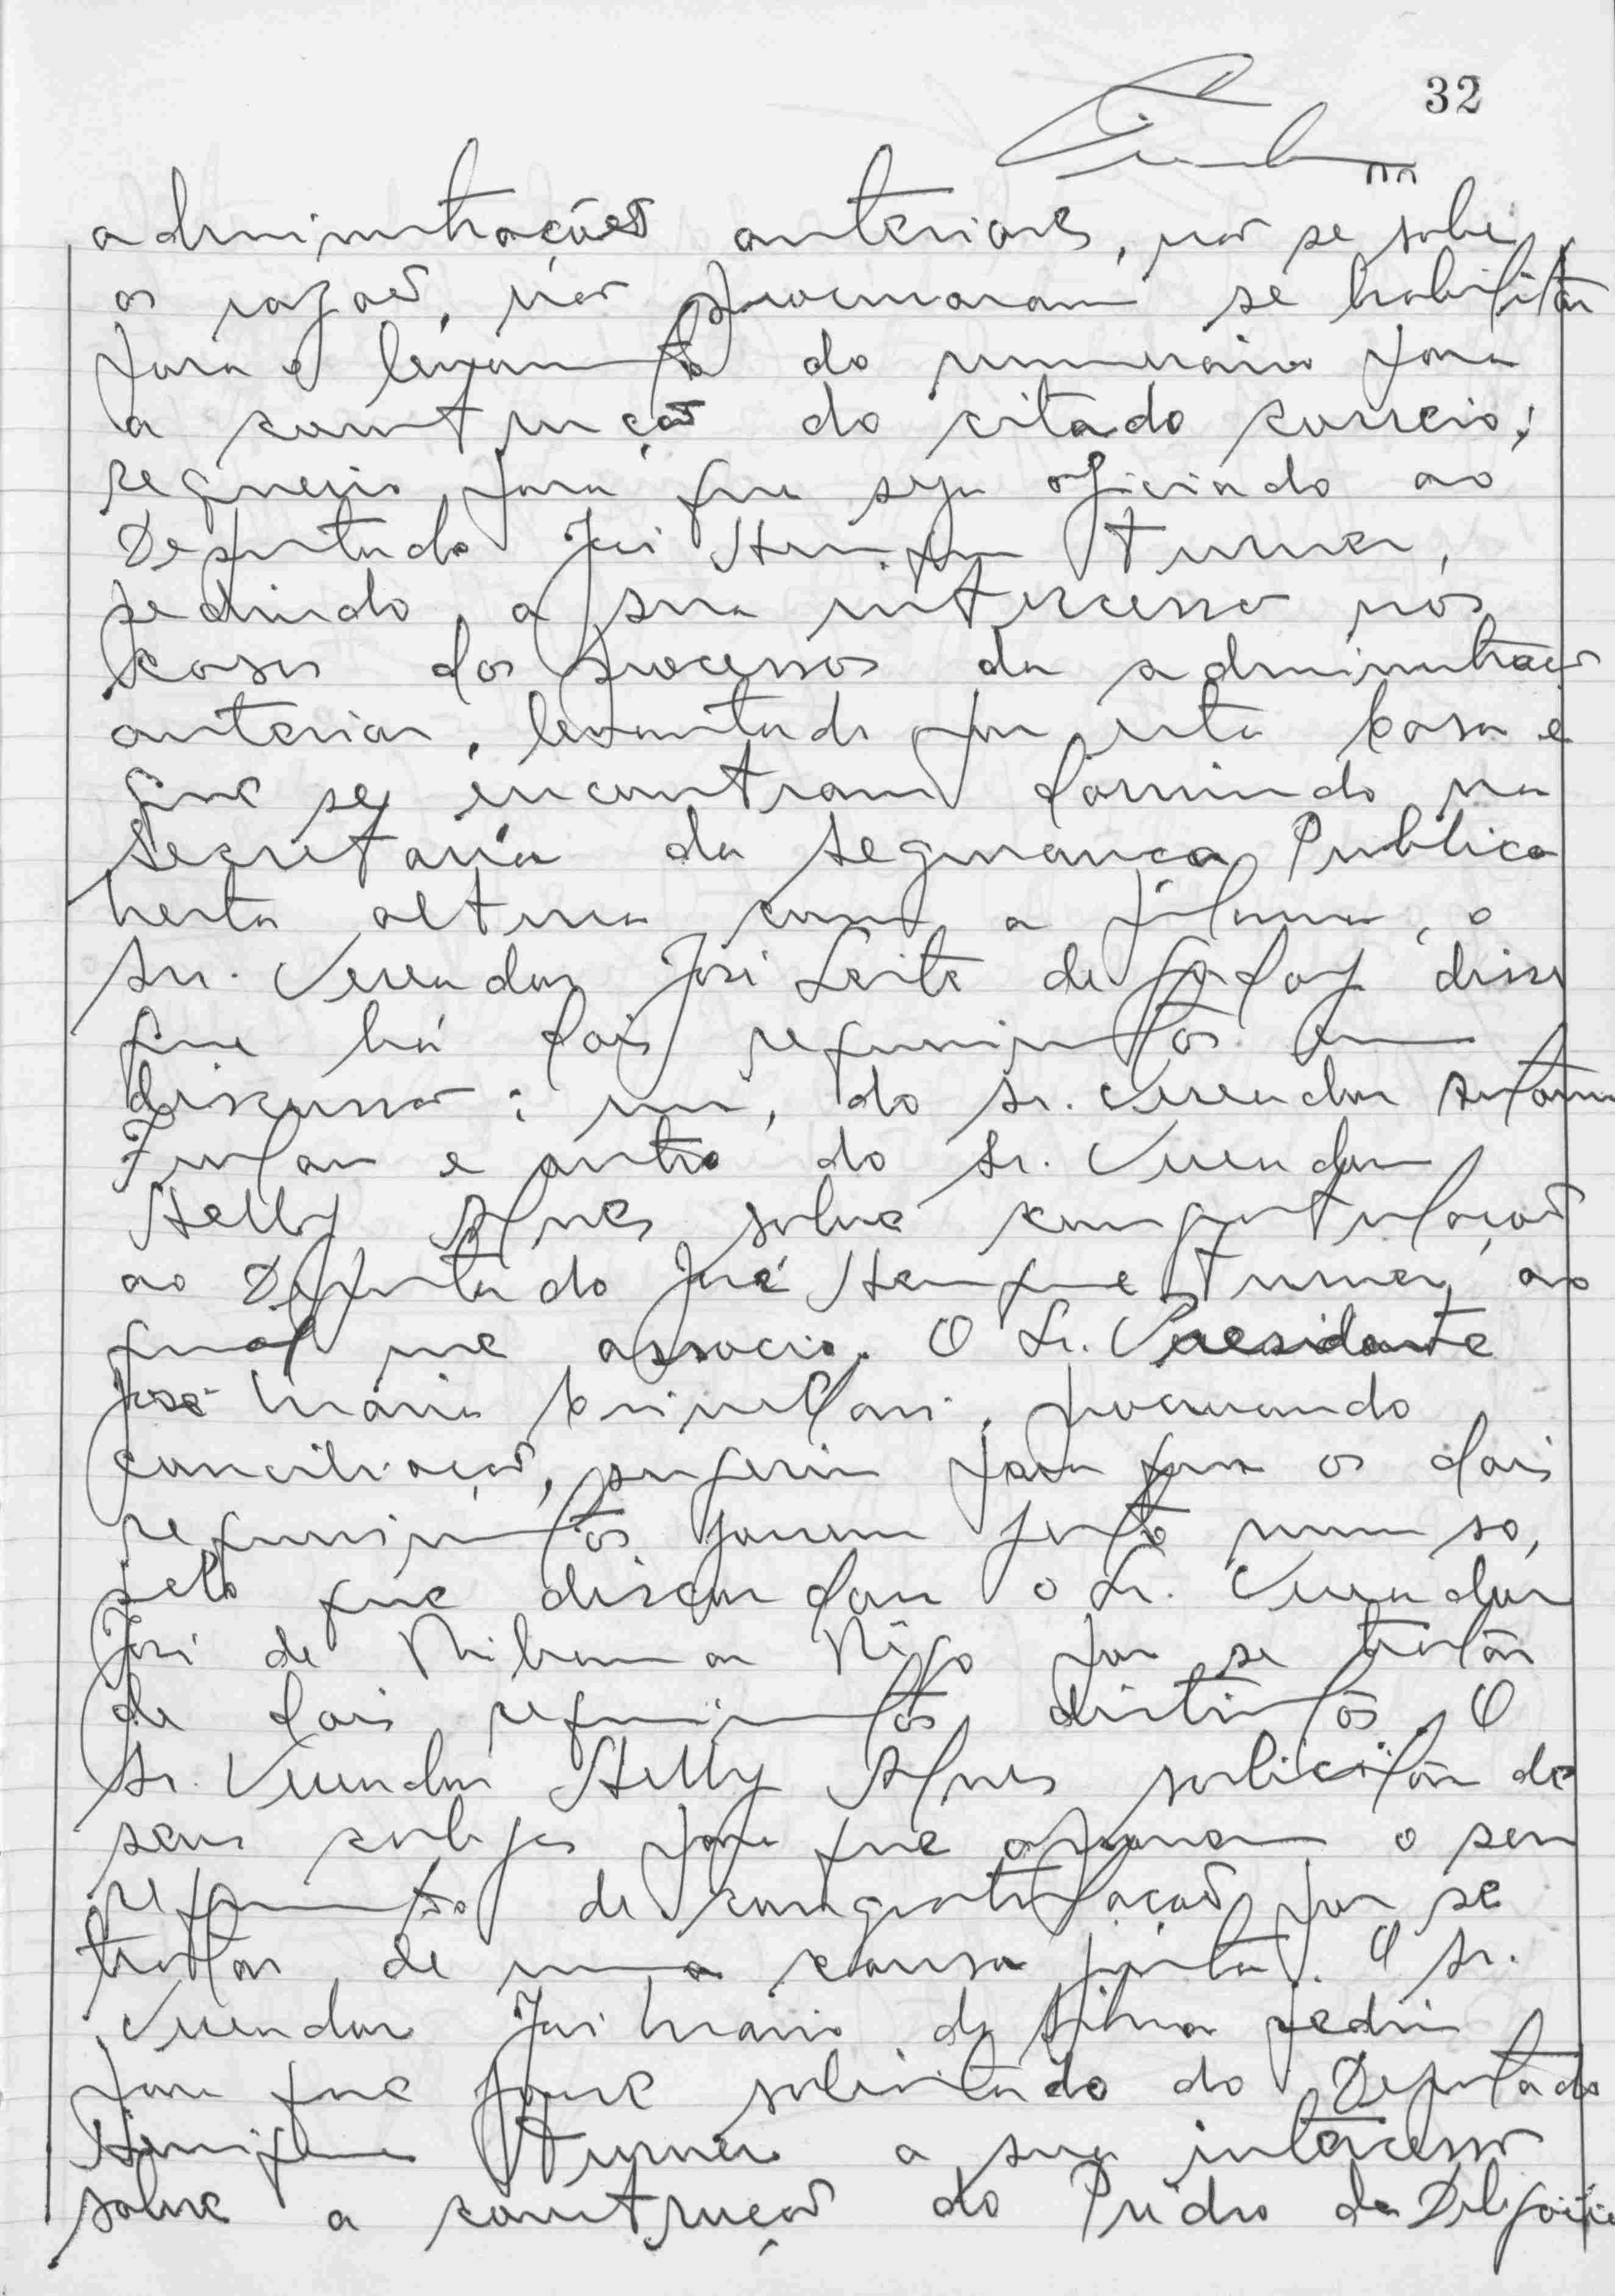 32
administrações anteriores, não se sabe
as razões, não procuraram se habilitar
para o levantamento do numerário para
a construção do citado correio;
requeiro para que seja oficiado ao
Deputado José Henrique Turner,
pedindo a sua intercessão nos
casos dos processos da administração
anterior, levantado por esta Casa e
que se encontram dormindo na
Secretaria da Segurança Publica
Nesta altura com a palavra, o
Sr. Vereador José Leite de Godoy disse
que há dois requerimentos em
discussão: um, do Sr. Vereador Antonio
Furlan e outro do Sr. Vereador
Helly Alves sobre congratulação
ao Deputado José Henrique Turner, ao
qual me associo. O Sr. Presidente
José Maria, procurando
conciliação, sugeriu para que os dois
requerimentos fossem feito num só,
pelo que discordou o Sr. Vereador
José de por se tratar
de dois requerimentos distintos. O
Sr. Vereador Helly Alves solicitou de
seus colegas para que aprovassem o seu
requerimento de congratulação por se
tratar de uma causa justa. O Sr.
Vereador José Maria da Silva pediu
para que fosse solicitado do Deputado
Henrique Turner a sua intercessão
sobre a construção do Prédio da Delegacia